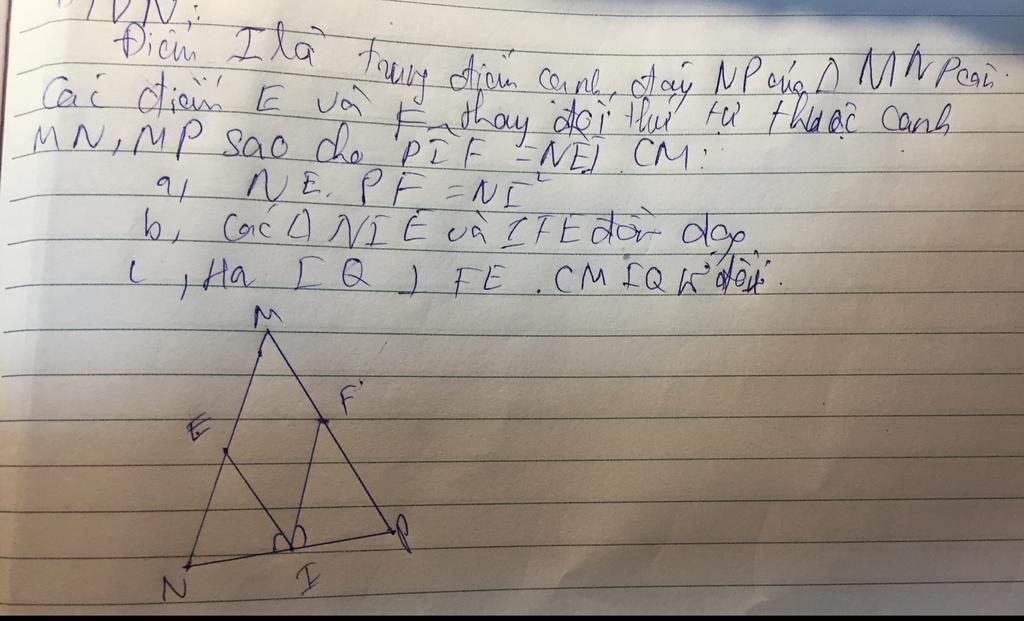 BTVN:
Điểm I là trung điểm cạnh đáy NP của Δ MNP cân
Các điểm E và F thay đổi thứ tự thuộc cạnh
MN, MP sao cho PIF = NEI. CM:
a, NE. PF = NI²
b, Các Δ NIE và IFE đồng dạng
c, Hạ IQ ⊥ FE. CM IQ đổi.
M
F
E
P
N
I